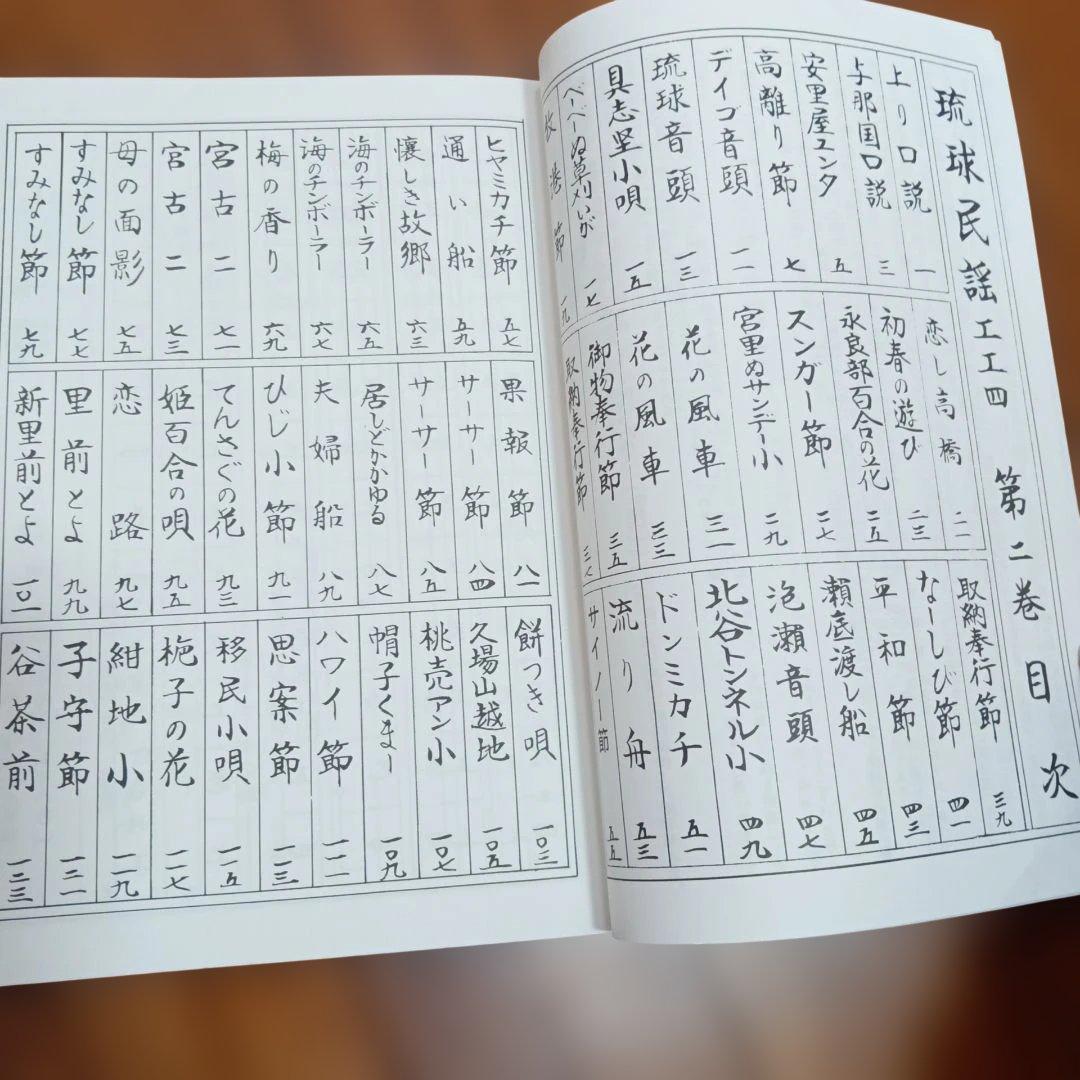 琉球民謡工工四 第二巻 目次
上り口説 一
与那国口説 三
安里屋ユンタ 五
高離り節 七
デイゴ音頭 一一
琉球音頭 一三
具志堅小唄 一五
べーべーぬ草刈いが 一七
牧港節 一九
恋し高橋 二一
初春の遊び 二三
永良部百合の花 二五
スンガー節 二七
宮里ぬサンデー小 二九
花の風車 三一
花の風車 三三
御物奉行節 三五
取納奉行節 三七
取納奉行節 三九
なーしび節 四一
平和節 四三
瀬底渡し船 四五
泡瀬音頭 四七
北谷トンネル小 四九
ドンミカチ 五一
流り舟 五三
サイノー節 五五
ヒヤミカチ節 五七
通い船 五九
懐しき故郷 六三
海のチンボーラー 六五
海のチンボーラー 六七
梅の香り 六九
宮古二 七一
宮古二 七三
母の面影 七五
すみなし節 七七
すみなし節 七九
果報節 八一
サーサー節 八四
サーサー節 八五
居しどかかゆる 八七
夫婦船 八九
ひじ小節 九一
てんさぐの花 九三
姫百合の唄 九五
恋路 九七
里前とよ 九九
新里前とよ 一〇一
餅つき唄 一〇三
久場山越地 一〇五
桃売アン小 一〇七
帽子くまー 一〇九
ハワイ節 一一一
思案節 一一三
移民小唄 一一五
梔子の花 一一七
紺地小 一一九
子守節 一二一
谷茶前 一二三